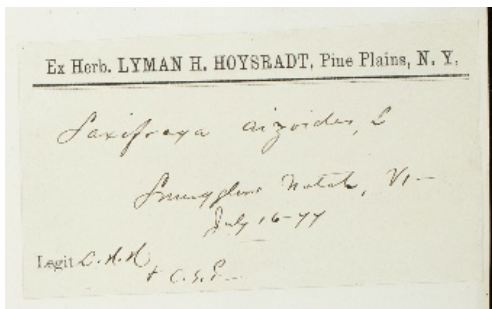 Ex Herb. LYMAN H. HOYSRADT, Pine Plains, N. Y.
Saxifraga aizoides, L
Smugglers Notch, Vt
July 16-77
Legit L. H. H.
+ C. S. P.